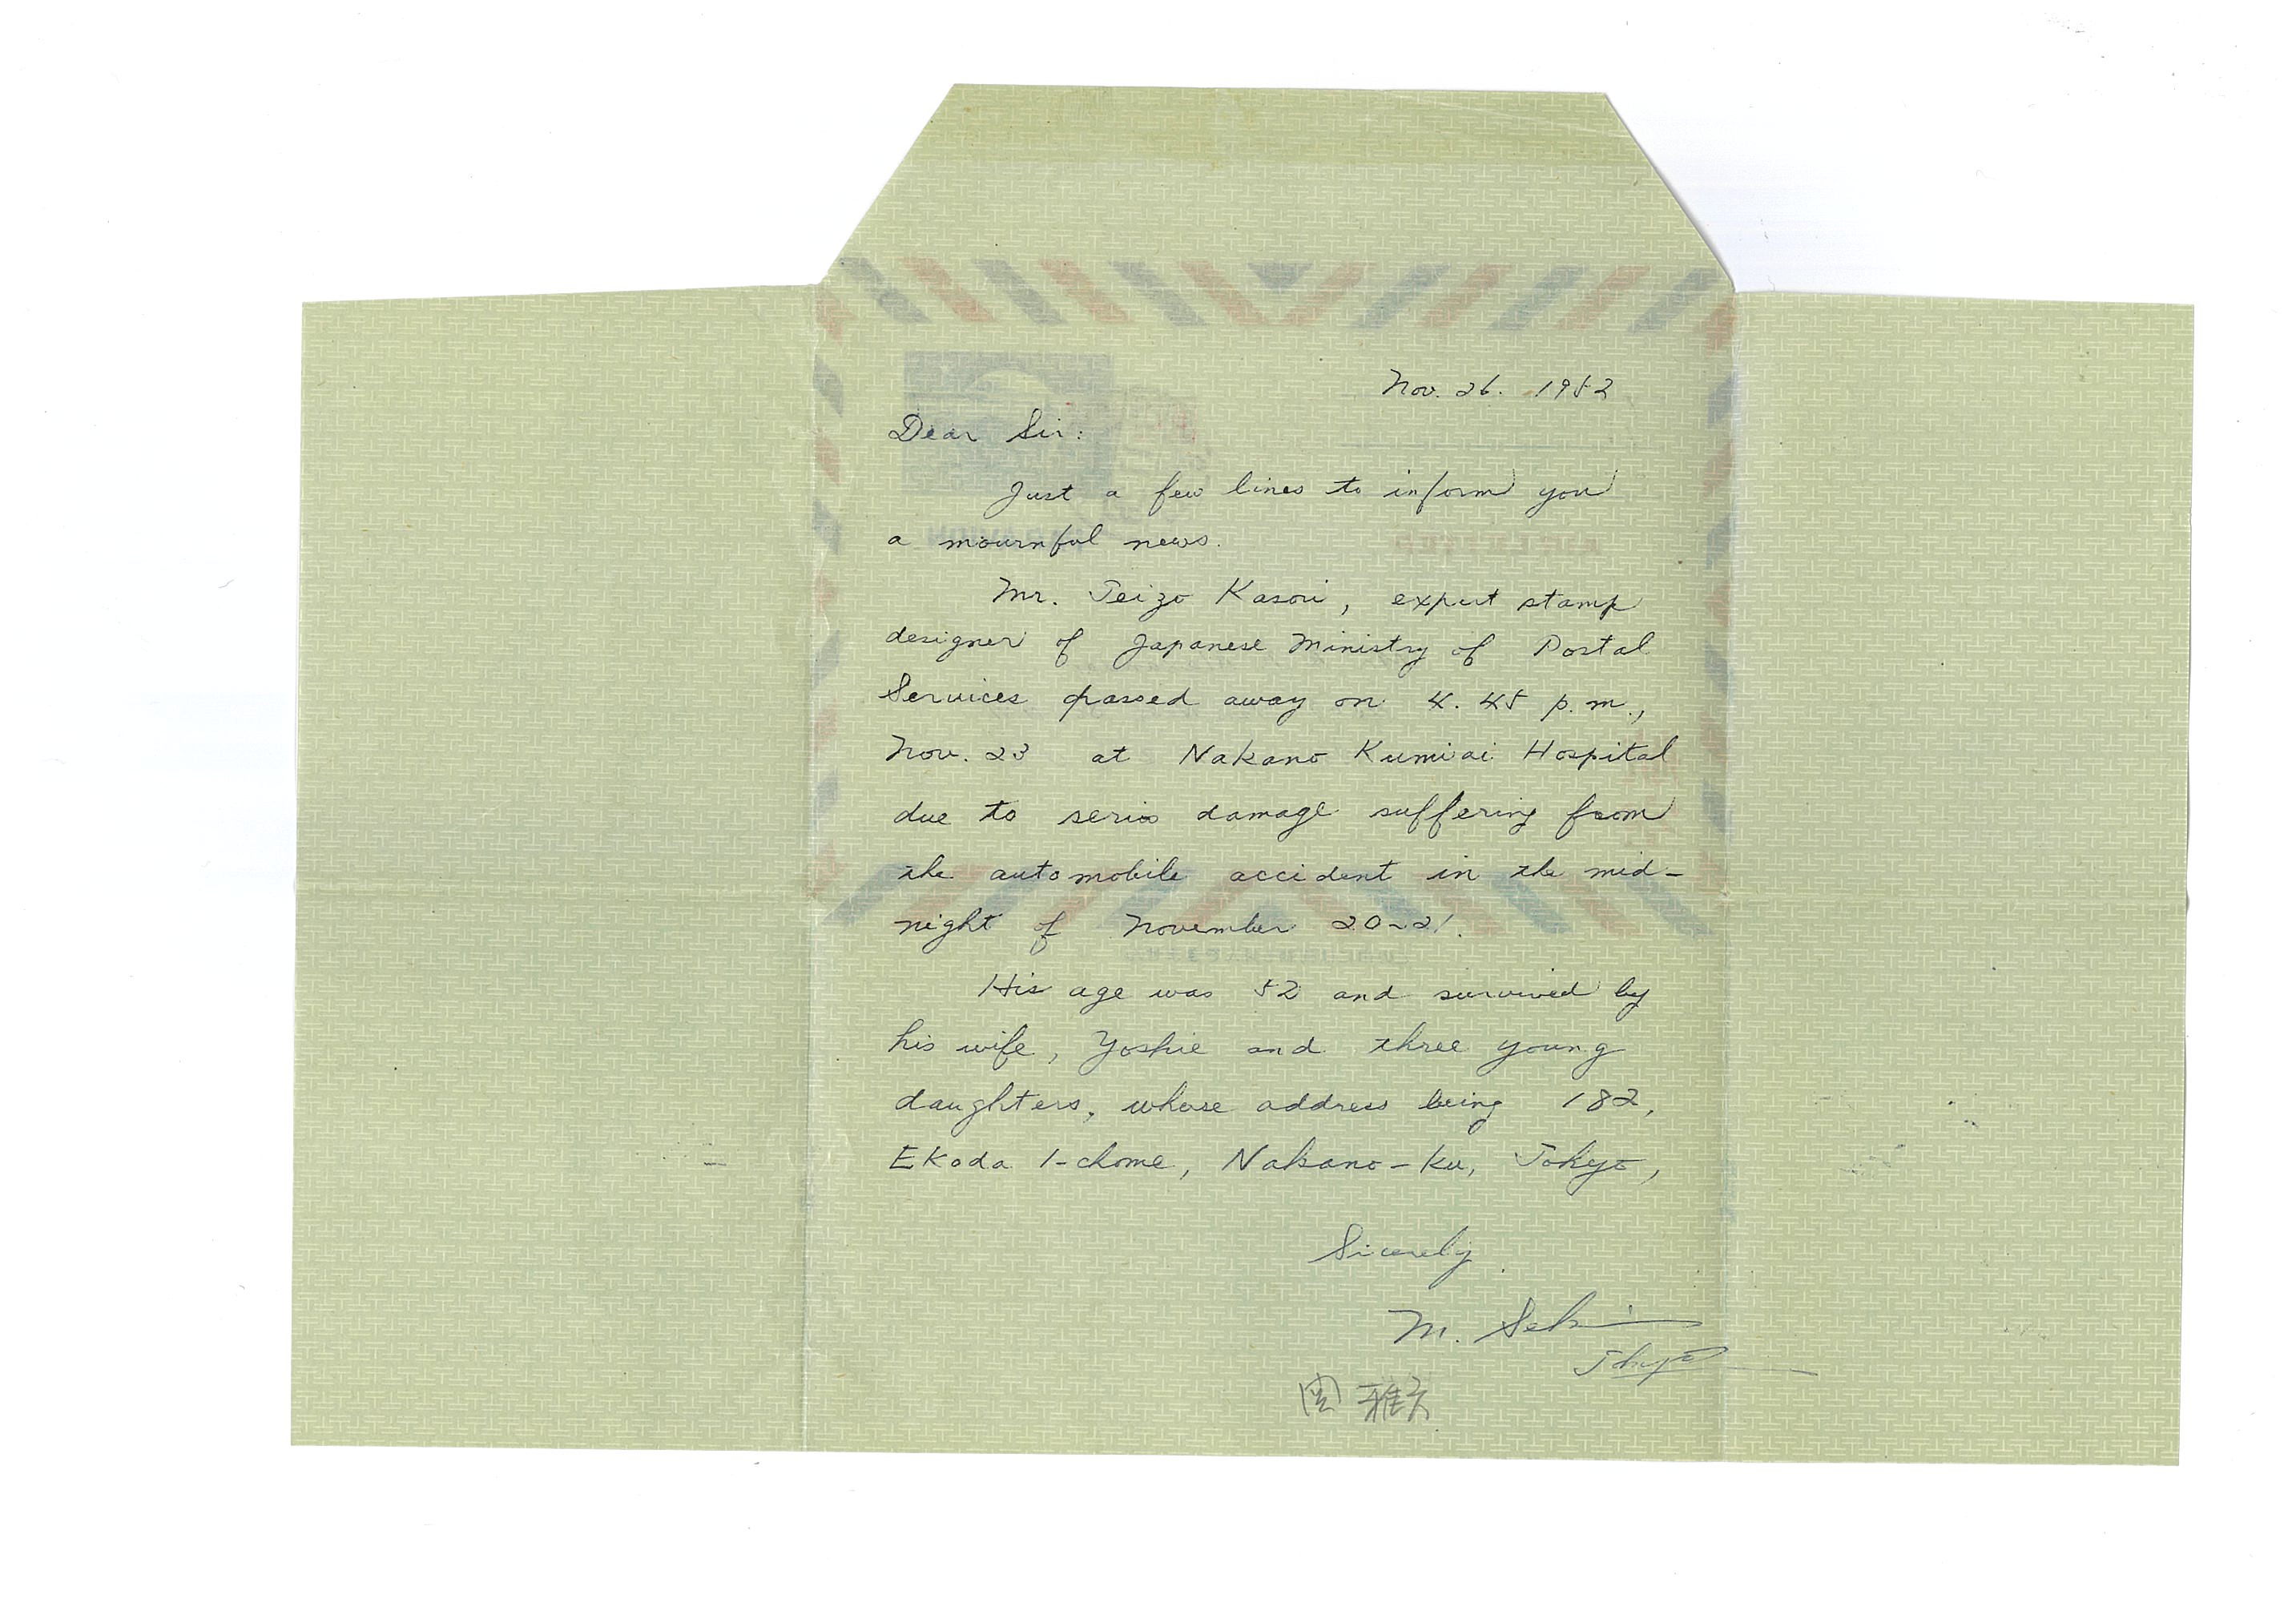 Nov. 26. 1952
Dear Sir:
Just a few lines to inform you
a mournful news.
Mr. Teizo Kasori, expert stamp
designer of Japanese Ministry of Postal
Services passed away on 4.45 p.m.,
Nov. 23 at Nakano Kumiai Hospital
due to serios damage suffering from
the automobile accident in the mid-
night of November 20~21.
His age was 52 and survived by
his wife, Yoshie and three young
daughters, whose address being 182,
Ekoda 1-chome, Nakano-Ku, Tokyo,
Sicerely
M. Seki
Tokyo
関 雅夫